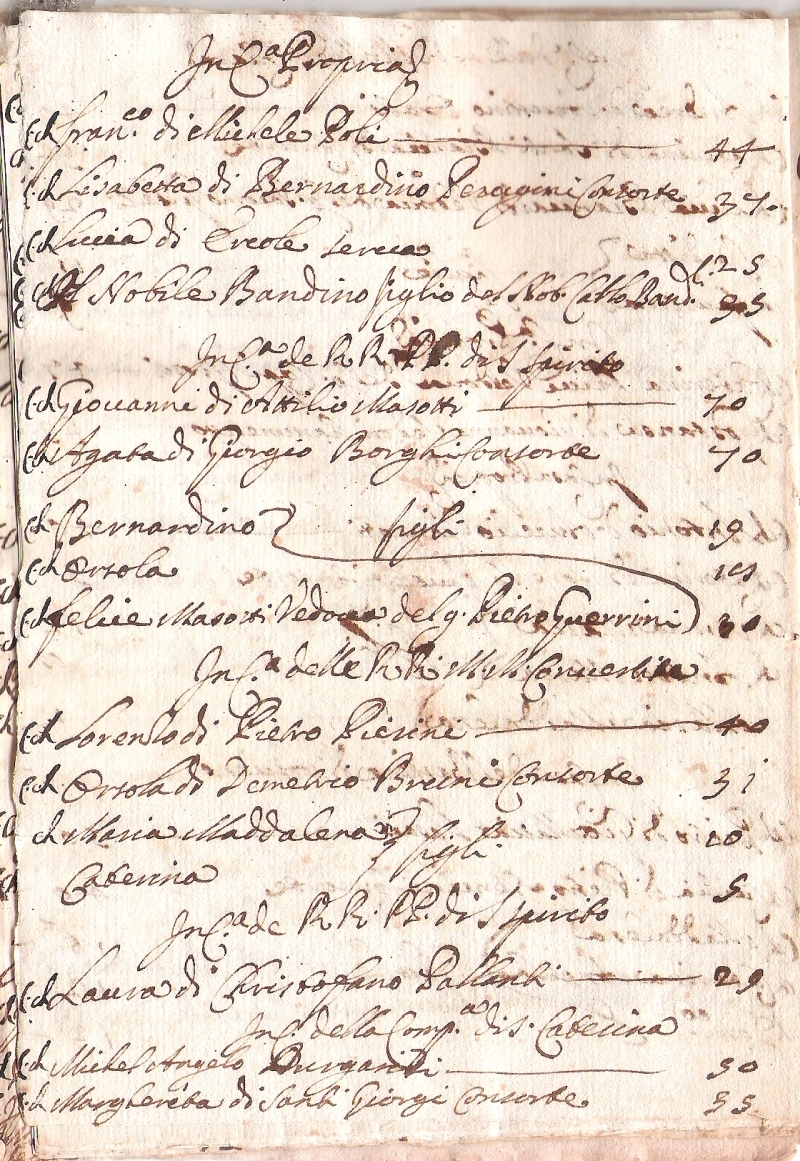 In C.a Propria
C. ch Fran.co di Michele Poli 44
C. ch Lisabetta di Bernardino Perugini Consorte 37
C. ch Lucia di Ercole serva
125
C. ch Il Nobile Bandino figlio del Nob. Carlo Band.i 35
In C.a de R R. PP. di S Spirito
C. ch Giovanni di Attilio Masotti 70
C. ch Agata di Giorgio Borghi Consorte 70
C. ch Bernardino figli 19
C. ch Orsola
C. ch Felice Masotti Vedova del q. Pietro Guerrini 30
In C.a delle R R. M.M. Convertite
C. ch Lorenzo di Pietro Pierini 40
C. ch Orsola di Demetrio Breini Consorte 31
ch Maria Maddalena figli 10
Caterina 5
In C.a de R R. PP. di S Spirito
C. ch Laura di Christofano Pallanti 29
In C. della Comp.a di S. Caterina
C. ch Michel Angelo 50
C. ch Margherita di Santi Giorgi Consorte 35